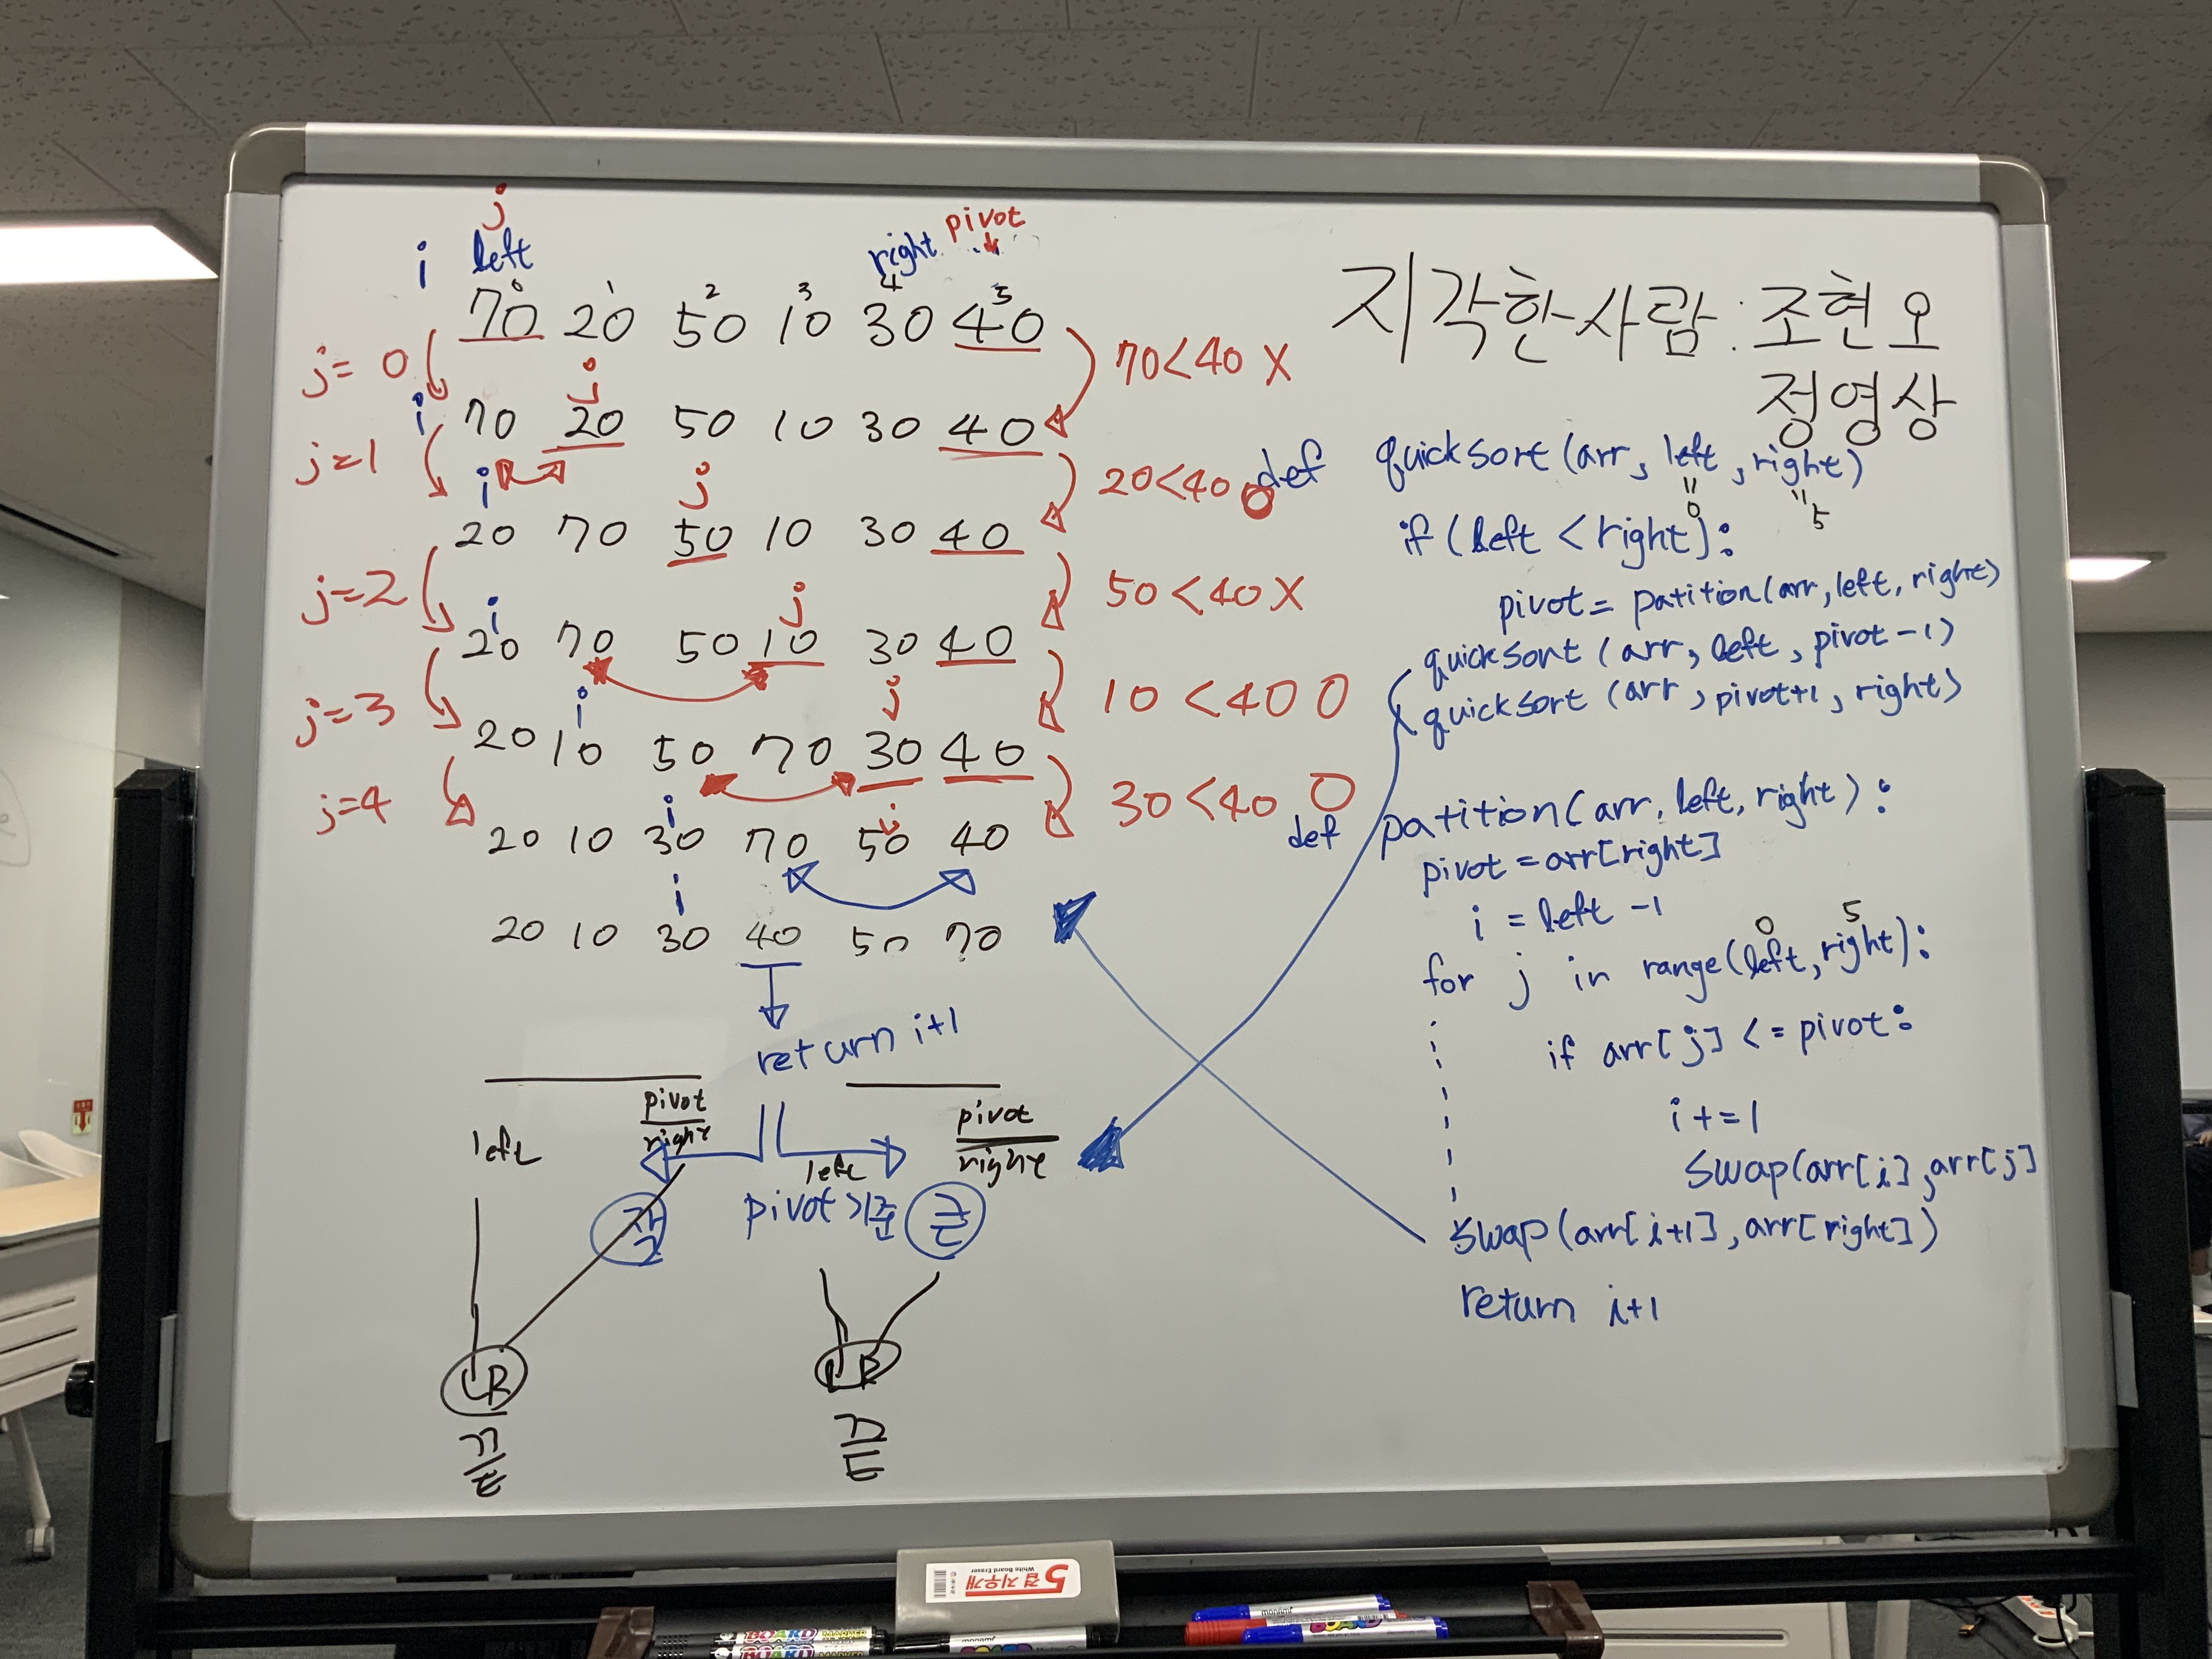 j
i left right pivot
0 1 2 3 4 5
70 20 50 10 30 40
j= 0 70<40 X
i j
70 20 50 10 30 40
j=1 20<40 O
i j
20 70 50 10 30 40
j=2 50<40 X
i j
20 70 50 10 30 40
j=3 10<40 O
i j
20 10 50 70 30 40
j=4 30<40 O
i j
20 10 30 70 50 40
i
20 10 30 40 50 70
return i+1
left pivot
right
left pivot
right
작
pivot 기준 큰
LR LR
끝 끝
지각한사람 : 조현오
정영상
def quicksort (arr, left, right)
" "
0 5
if (left < right):
pivot = patition(arr, left, right)
quicksort (arr, left, pivot-1)
quicksort (arr, pivot+1, right)
def patition(arr, left, right):
pivot = arr[right]
i = left -1
0 5
for j in range(left, right):
if arr[j] <= pivot:
i +=1
swap(arr[i], arr[j]
swap(arr[i+1], arr[right])
return i+1
5
겹 지우개
White Board Eraser
monami
BOARD MARKER
BOARD MARKER
monami
BOARD
BOARD